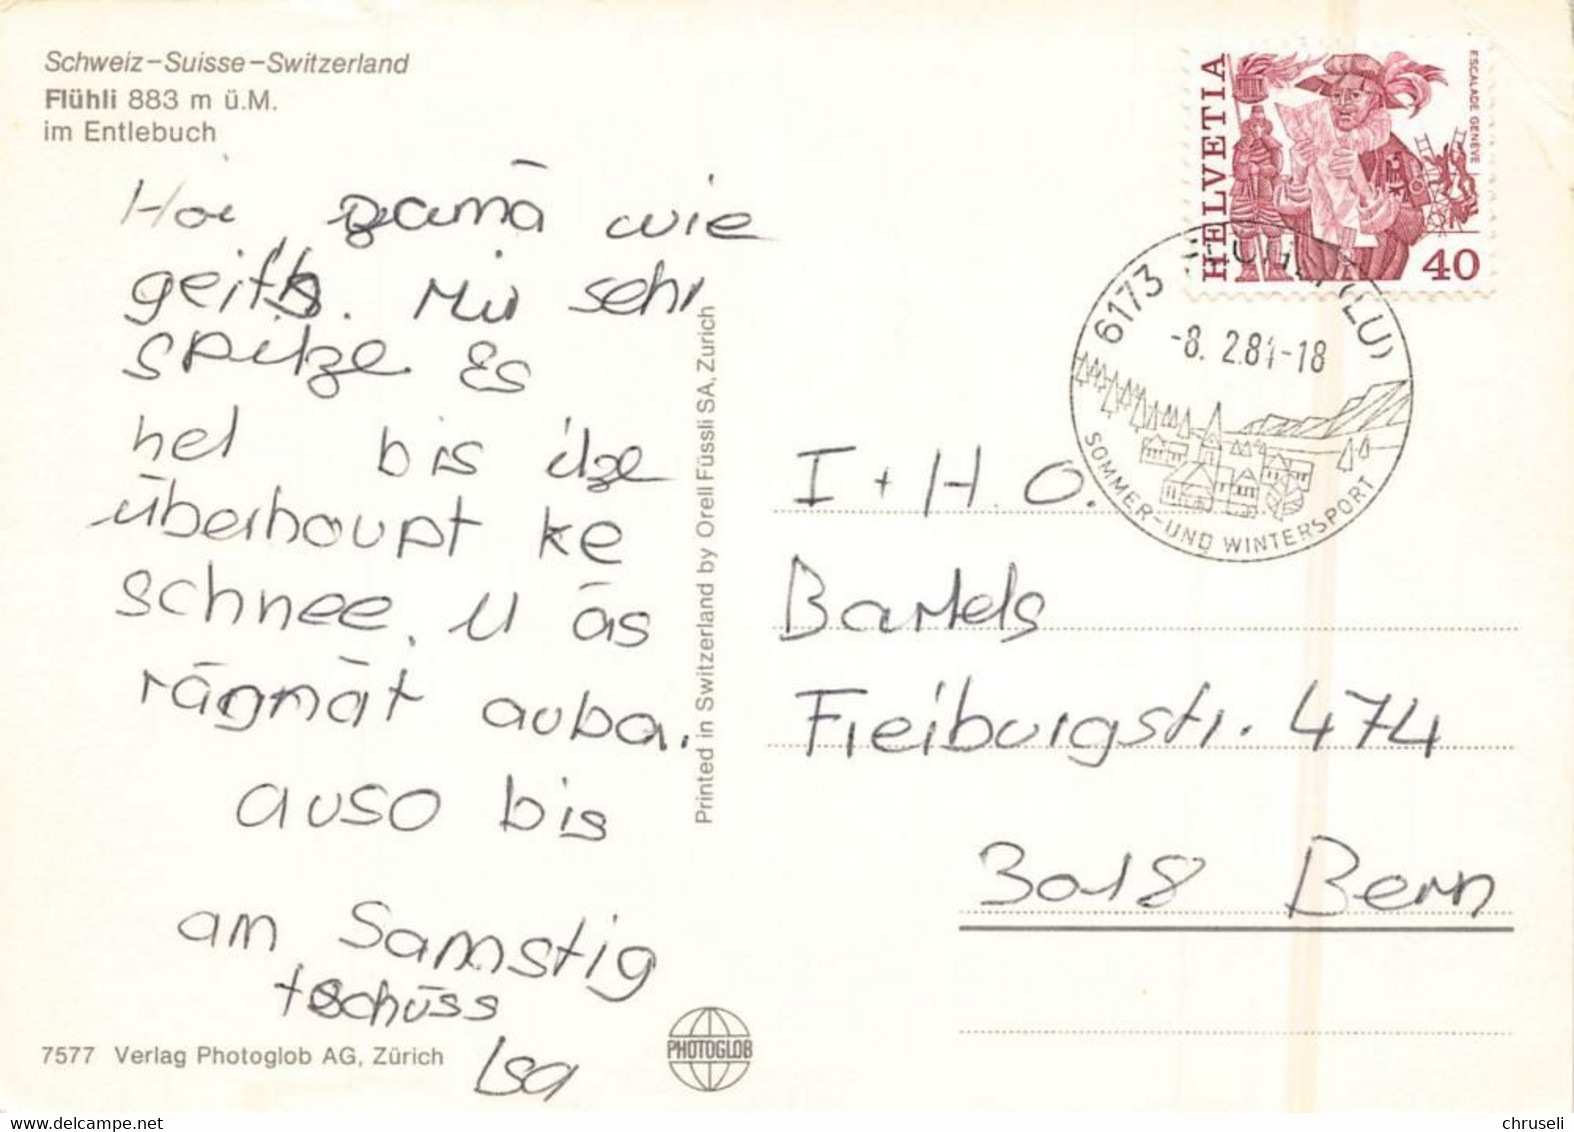 Schweiz–Suisse–Switzerland
Flühli 883 m ü.M.
im Entlebuch
Hoi zämä wie
geits. Mir sehr
spitze. Es
het bis itze
überhoupt ke
schnee. U äs
rägnät auba.
auso bis
am Samstig
tschüss
Isa
7577 Verlag Photoglob AG, Zürich
PHOTOGLOB
Printed in Switzerland by Orell Füssli SA, Zurich
HELVETIA
ESCALADE GENÈVE
40
6173 FLÜHLI (LU)
-8. 2.81-18
SOMMER-UND WINTERSPORT
I + H. O.
Bartels
Freiburgstr. 474
3018 Bern
www.delcampe.net
chruseli